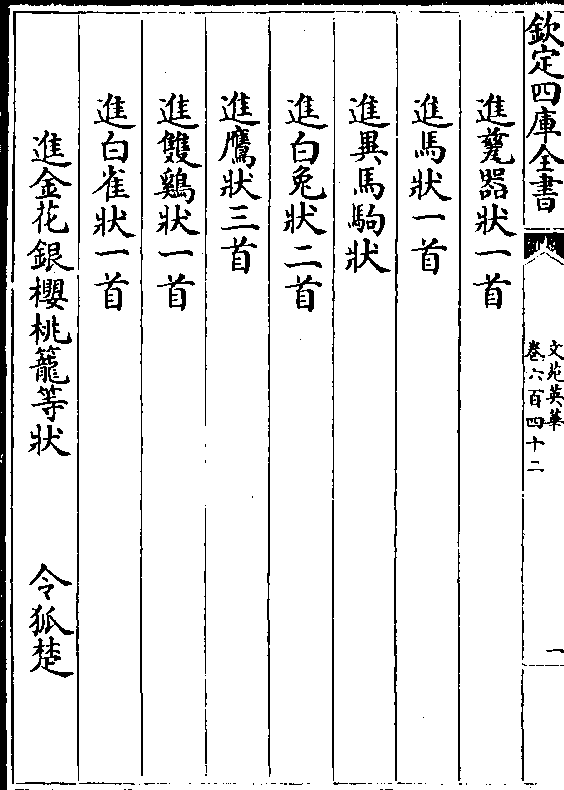 欽定四庫全書
文苑英華
卷六百四十二
一
進甆器狀一首
進馬狀一首
進異馬駒狀
進白兔狀二首
進鷹狀三首
進雙鷄狀一首
進白雀狀一首
進金花銀櫻桃籠等狀 令狐楚